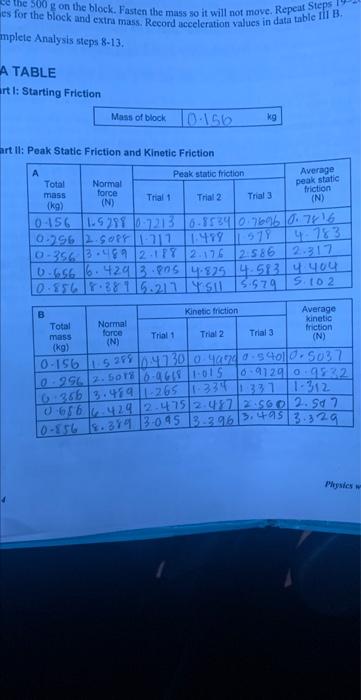 the 500 g on the block. Fasten the mass so it will not move. Repeat Steps
es for the block and extra mass. Record acceleration values in data table III B.
mplete Analysis steps 8-13.
A TABLE
art I: Starting Friction
Mass of block 0.156 kg
art II: Peak Static Friction and Kinetic Friction
A
Total mass (kg) Normal force (N) Peak static friction Average peak static friction (N)
Trial 1 Trial 2 Trial 3
0.156 1.5288 0.7213 0.8534 0.7696 0.7816
0.256 2.5088 1.717 1.499 1.578 4.783
0.356 3.489 2.188 2.176 2.586 2.317
0.656 6.429 3.805 4.825 4.583 4.404
0.856 8.389 5.217 4.511 5.579 5.102
B
Total mass (kg) Normal force (N) Kinetic friction Average kinetic friction (N)
Trial 1 Trial 2 Trial 3
0.156 1.5288 0.4730 0.5401 0.5037
0.256 2.5018 0.9618 1.015 0.9729 0.9832
0.356 3.489 1.265 1.334 1.337 1.312
0.656 6.429 2.475 2.487 2.560 2.507
0.856 8.389 3.095 3.396 3.495 3.329
Physics w